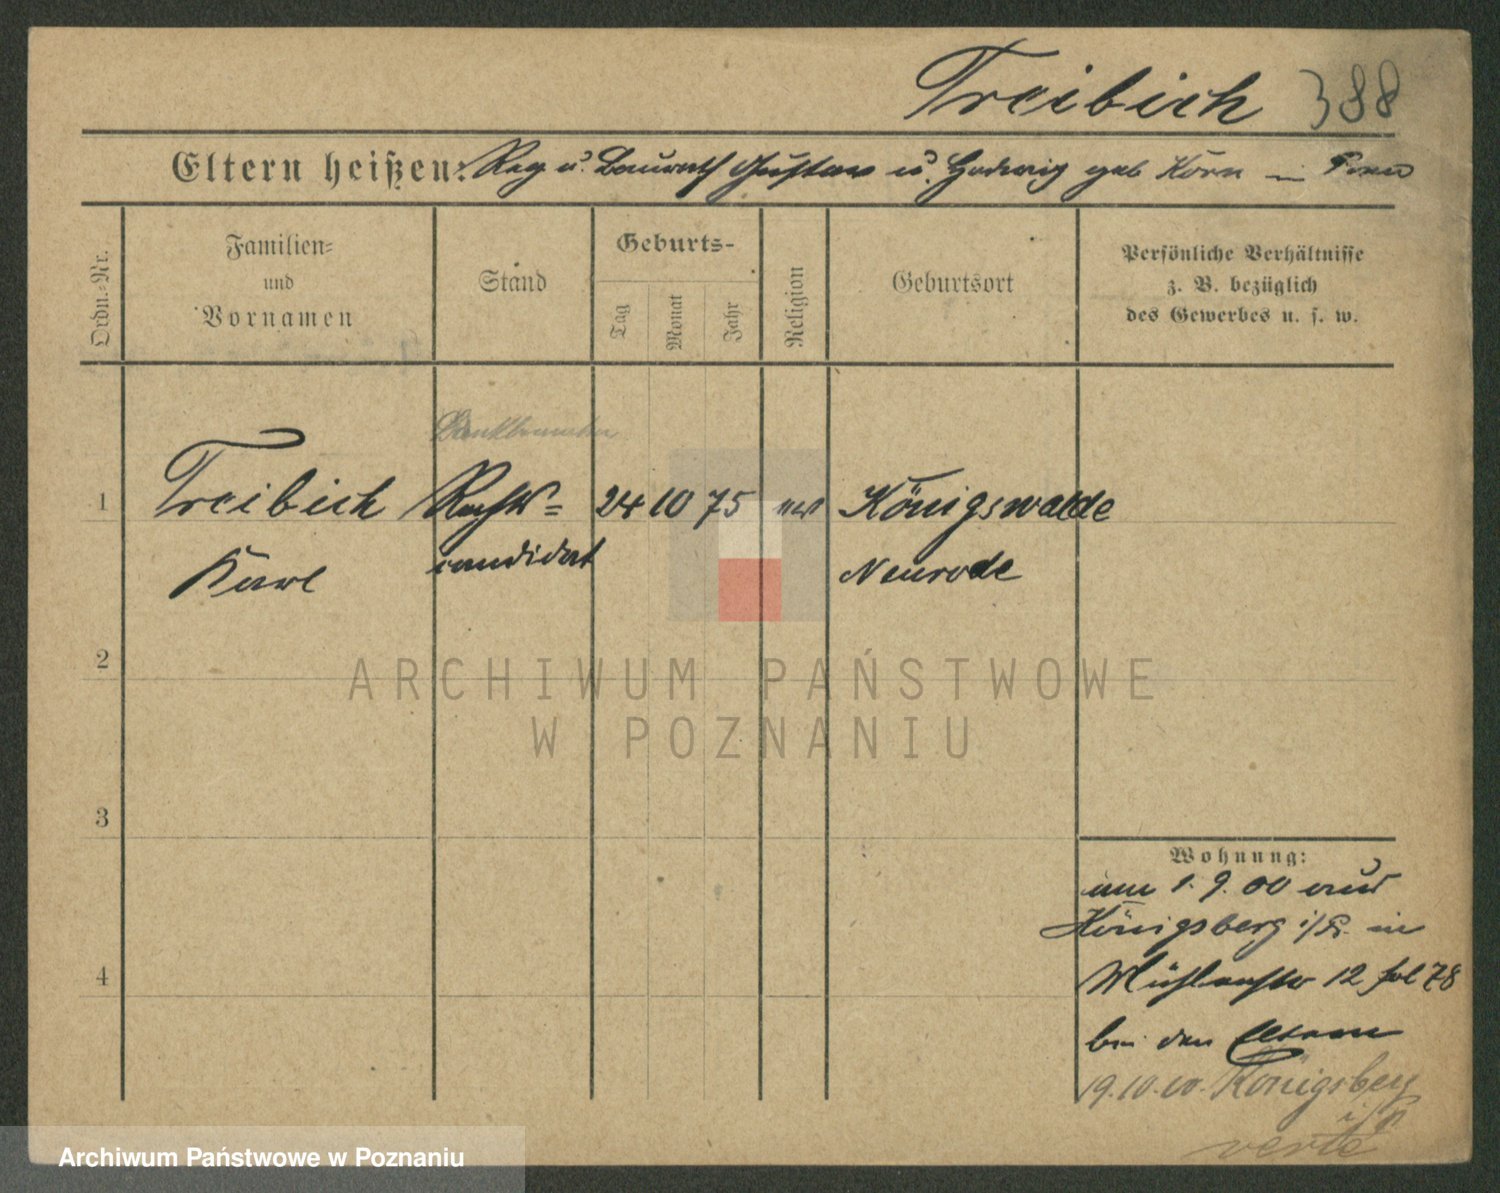 Treibich 388
Eltern heißen: Reg u. Baurath Gustav u. Hedwig geb Korn in Posen
Ordn.-Nr.
Familien-
und
Vornamen
Stand
Geburts-
Tag
Monat
Jahr
Religion
Geburtsort
Persönliche Verhältnisse
z. B. bezüglich
des Gewerbes u. s. w.
1 Treibich Rechts= 24 10 75 Königswalde
Karl candidat Neurode
2
3
4
Wohnung:
am 1. 9. 00 aus
Königsberg i/Pr. in
Mühlenstr 12 fol 78
bei den Eltern
19.10.00. Königsberg
i/Pr
verte
ARCHIWUM PAŃSTWOWE
W POZNANIU
Archiwum Państwowe w Poznaniu